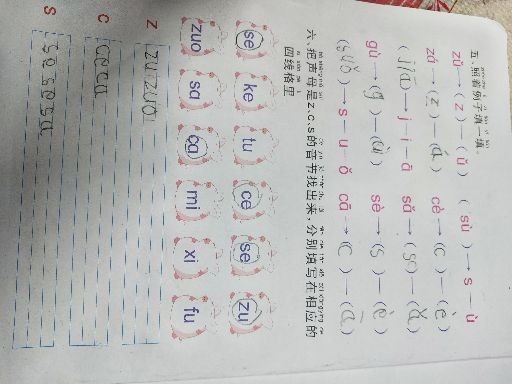 五、照着例子填一填。
zǔ → ( z ) — ( ǔ ) ( sù ) → s — ù
zá → ( z ) — ( á ) cè → ( c ) — ( è )
( jiā ) → j — i — ā sǎ → ( s ) — ( ǎ )
gù → ( g ) — ( ù ) sè → ( s ) — ( è )
( suǒ ) → s — u — ǒ cā → ( c ) — ( ā )
六、把声母是z、c、s的音节找出来，分别填写在相应的
四线格里
se ke tu ce se zu
zuo sa ca mi xi fu
z zu zuo
c ce ca
s